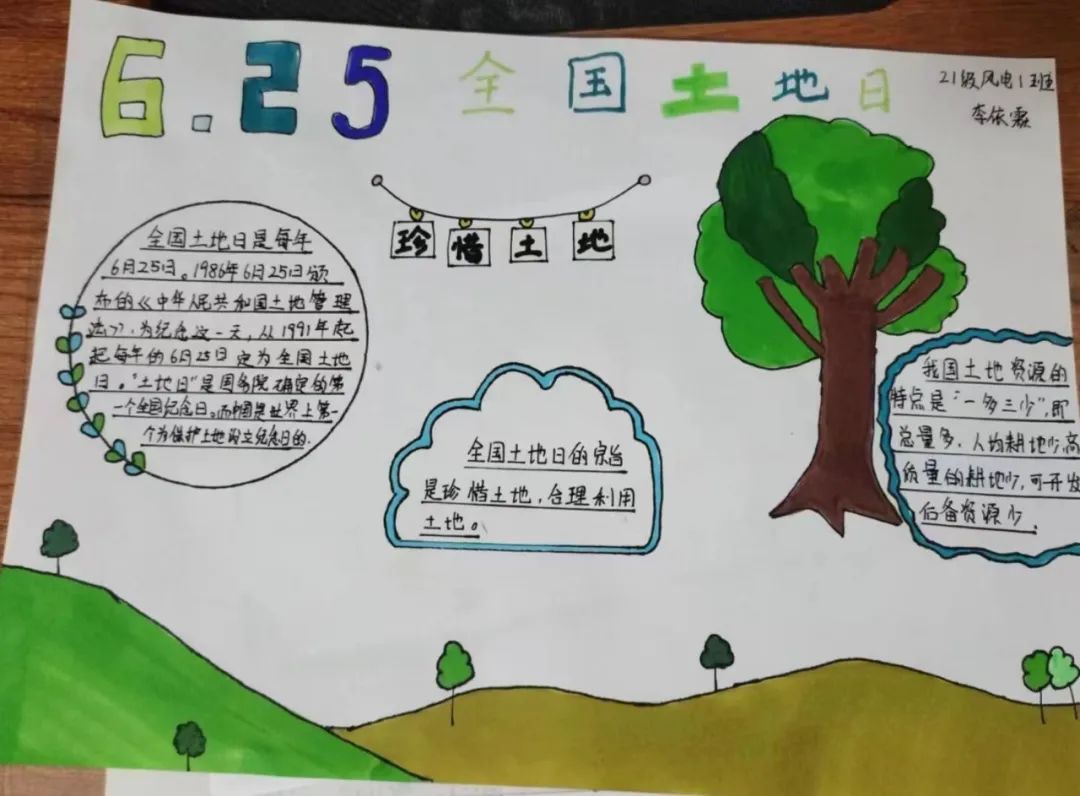 6.25 全国土地日
21级风电1班
李依霖
珍惜土地
全国土地日是每年
6月25日。1986年6月25日颁
布的《中华人民共和国土地管理
法》,为纪念这一天,从1991年起
起每年的6月25日定为全国土地
日。"土地日"是国务院确定的第
一个全国纪念日。而中国是世界上第一
个为保护土地而设立纪念日的.
全国土地日的宗旨
是珍惜土地,合理利用
土地。
我国土地资源的
特点是"一多三少",即
总量多,人均耕地少,高
质量的耕地少,可开发
后备资源少.